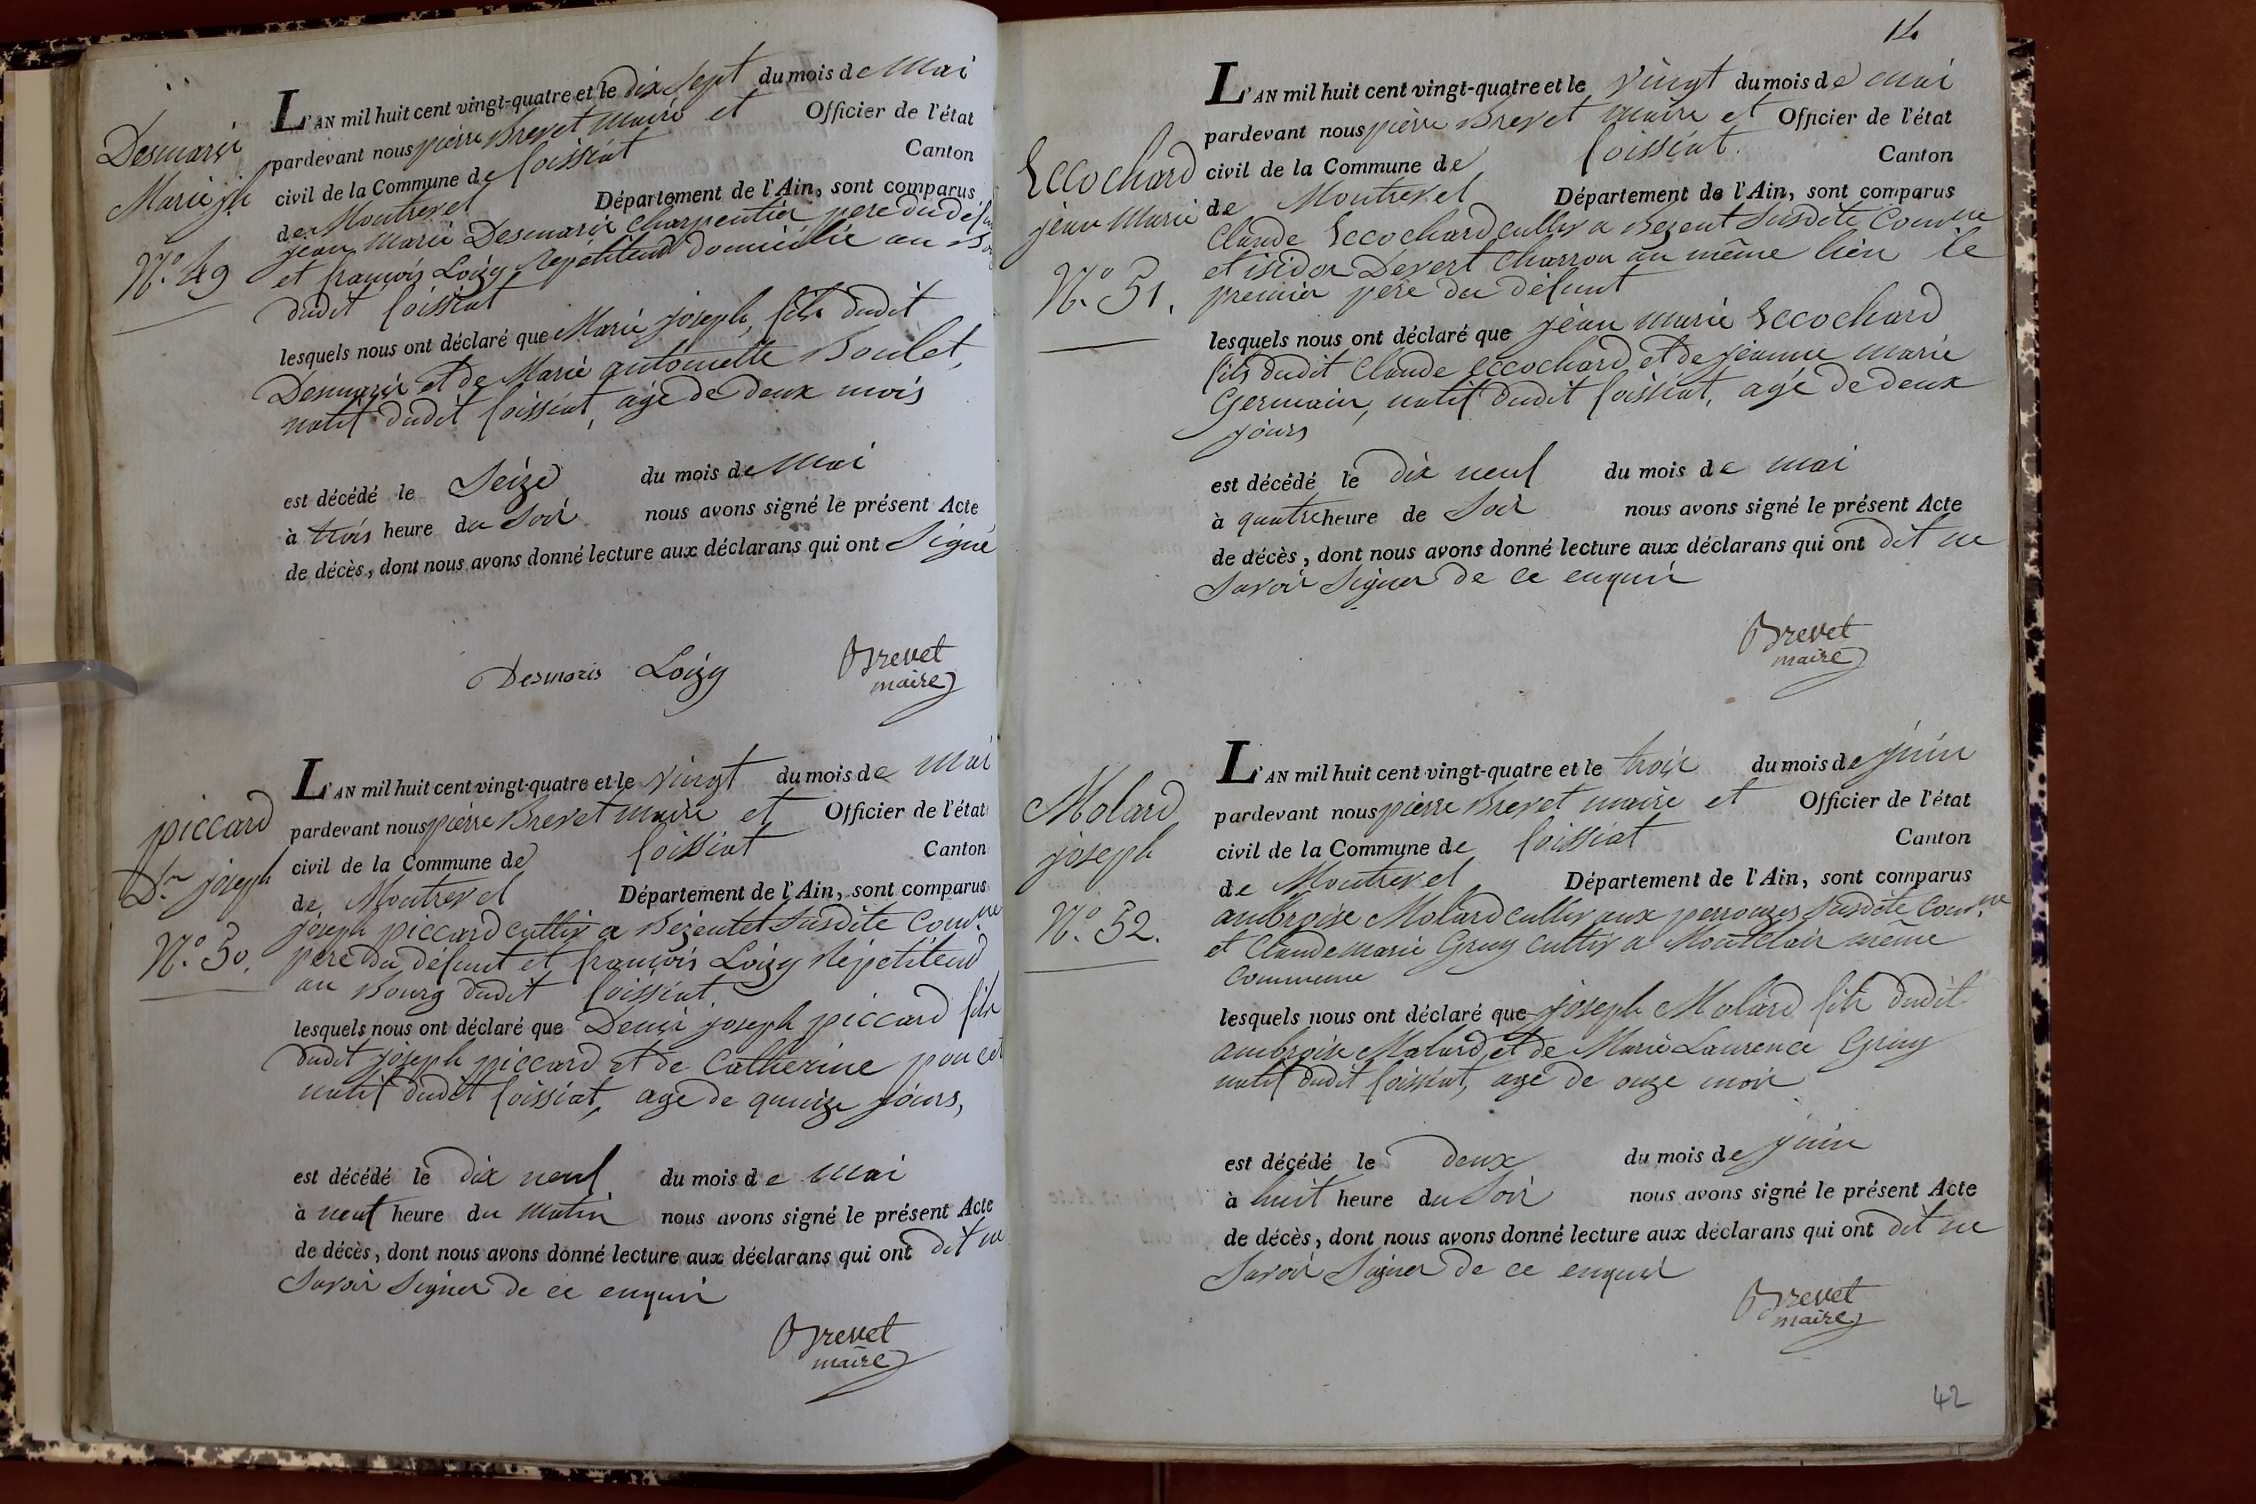 Desmaris
Marie jh
N.º 49
L'AN mil huit cent vingt-quatre et le dix sept du mois de Mai
pardevant nous pierre Brevet maire et Officier de l'état
civil de la Commune de foissiat Canton
de Montrevel Département de l'Ain, sont comparus
jean Marie Desmaris charpentier pere du défu
et françois Loizy Répétiteur domicilié au Bo
dudit foissiat
lesquels nous ont déclaré que Marie joseph, fils dudit
Desmaris et de Marie antoinette Boulet,
natif dudit foissiat, agé de deux mois
est décédé le Seize du mois de Mai
à trois heure du Soir nous avons signé le présent Acte
de décès, dont nous avons donné lecture aux déclarans qui ont Signé
Desmaris Loizy Brevet
maire
piccard
D.is joseph
N.º 50.
L'AN mil huit cent vingt-quatre et le vingt du mois de Mai
pardevant nous pierre Brevet maire et Officier de l'état
civil de la Commune de foissiat Canton
de Montrevel Département de l'Ain, sont comparus
joseph piccard cultiv a Bezentet Susdite Com.ne
pere du defunt et françois Loizy Répétiteur
au Bourg dudit foissiat.
lesquels nous ont déclaré que Denis joseph piccard fils
dudit joseph piccard et de Catherine poncet
natif dudit foissiat, age de quinze jours,
est décédé le dix neuf du mois de Mai
à neuf heure du matin nous avons signé le présent Acte
de décès, dont nous avons donné lecture aux déclarans qui ont dit ne
Savoir Signer de ce enquis
Brevet
maire
14
Eccochard
jean Marie
N.º 51.
L'AN mil huit cent vingt-quatre et le vingt du mois de mai
pardevant nous pierre Brevet maire et Officier de l'état
civil de la Commune de foissiat. Canton
de Montrevel Département de l'Ain, sont comparus
Claude Eccochard cultiv a Bezent Susdite Com.ne
et isidor Devert Charron au même lieu le
premier pere du défunt
lesquels nous ont déclaré que jean marie Eccochard
fils dudit Claude Eccochard et de jeanne Marie
Germain, natif dudit foissiat, agé de deux
jours
est décédé le dix neuf du mois de mai
à quatre heure de Soir nous avons signé le présent Acte
de décès, dont nous avons donné lecture aux déclarans qui ont dit ne
Savoir Signer de ce enquis
Brevet
maire
Molard
joseph
N.º 52.
L'AN mil huit cent vingt-quatre et le trois du mois de juin
pardevant nous pierre Brevet maire et Officier de l'état
civil de la Commune de foissiat Canton
de Montrevel Département de l'Ain, sont comparus
ambroise Molard cultiv aux perrouzes Susdite Com.ne
et Claude marie Gruy cultiv a Montclair même
Commune
lesquels nous ont déclaré que joseph Molard fils dudit
ambroise Molard, et de Marie Laurence Gruy
natif dudit foissiat, age de onze mois
est décédé le deux du mois de juin
à huit heure du Soir nous avons signé le présent Acte
de décès, dont nous avons donné lecture aux déclarans qui ont dit ne
Savoir Signer de ce enquis
Brevet
maire
42